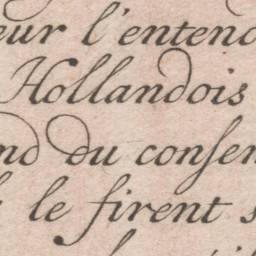 eur l'entend
Hollandois
nd du consen
le firent s